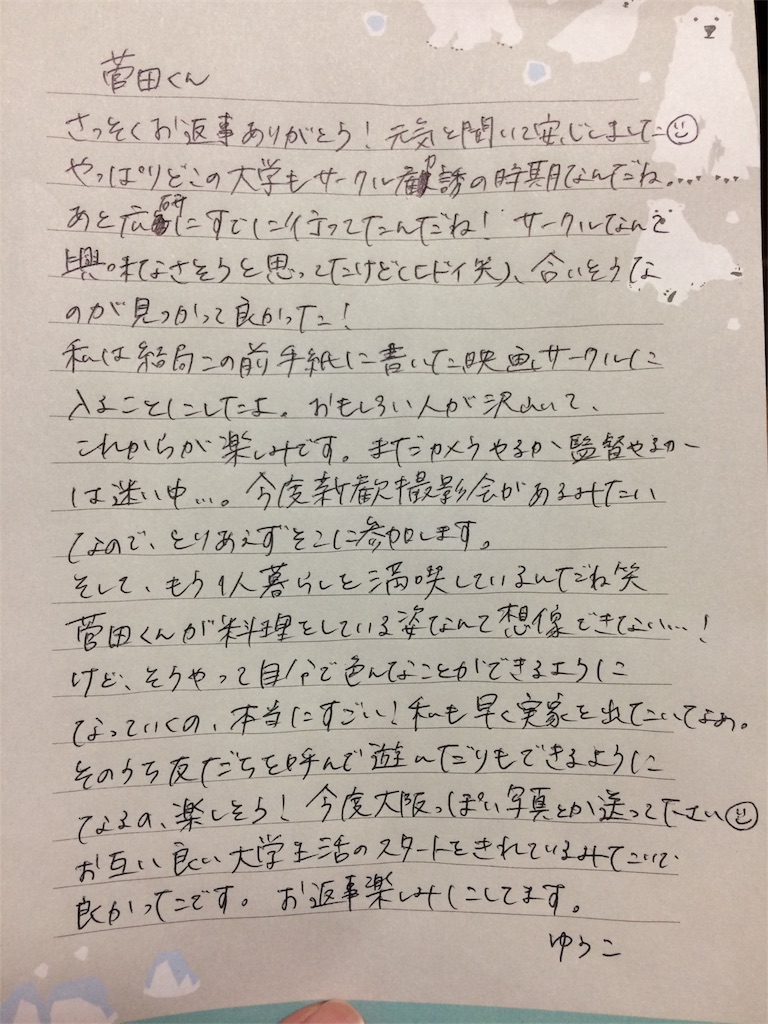 菅田くん
さっそくお返事ありがとう！元気と聞いて安心しました
やっぱりどこの大学もサークル勧誘の時期なんだね。……
あと広研にすでに行ってたんだね！サークルなんて
興味なさそうと思ってたけど（ヒドイ笑）、合いそうな
のが見つかって良かった！
私は結局この前手紙に書いた映画サークルに
入ることにしたよ。おもしろい人が沢山いて、
これからが楽しみです。まだカメラやるか監督やるか
は迷い中…。今度新歓撮影会があるみたい
なので、とりあえずそこに参加します。
そして、もう1人暮らしを満喫しているんだね笑
菅田くんが料理をしている姿なんて想像できない…！
けど、そうやって自分で色んなことができるように
なっていくの、本当にすごい！私も早く実家を出たいなあ。
そのうち友だちを呼んで遊んだりもできるように
なるの、楽しそう！今度大阪っぽい写真とか送ってださい
お互い良い大学生活のスタートをきれているみたいで
良かったです。お返事楽しみにしてます。
ゆうこ